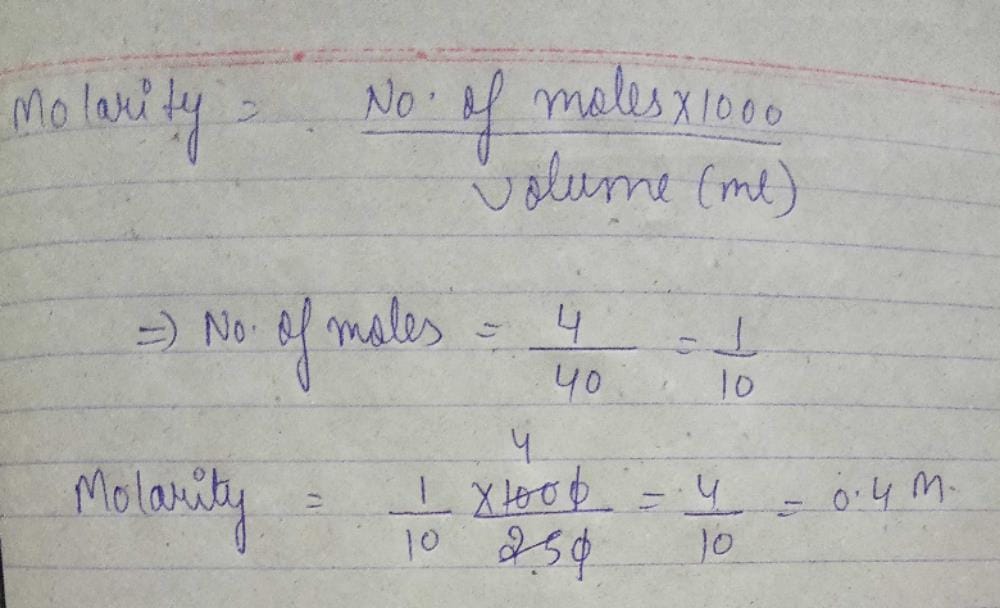 Molarity = No. of moles x 1000
volume (ml)
=> No. of moles = 4 = 1
40 10
4
Molarity = 1 x 1000 = 4 = 0.4 M.
10 250 10